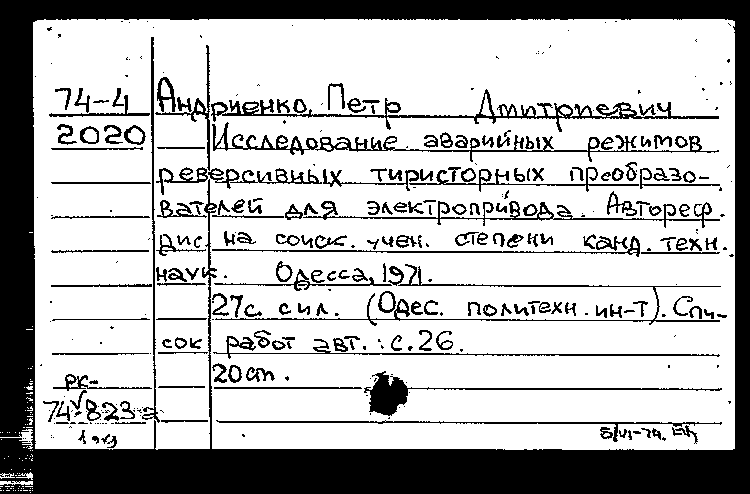 74-4 Андриенко, Петр Дмитриевич
2020 Исследование аварийных режимов
реверсивных тиристорных преобразо-
вателей для электропривода. Автореф.
дис. на соиск. учен. степени канд. техн.
наук. Одесса, 1971.
27с. с ил. (Одес. политехн. ин-т). Спи-
сок работ авт.: с.26.
20сm.
РК-
74-823а